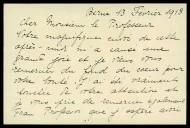 Berne 13 Février 1918
Cher Monsieur le Professeur
Votre magnifique envoi de cette
après-midi m'a causé une
grande joie et je viens vous
remercier du fond du cœur pour
votre bonté. J'ai été vraiment
touchée de votre attention et
je vous prie de remercier également
Frau Professor que j'espère